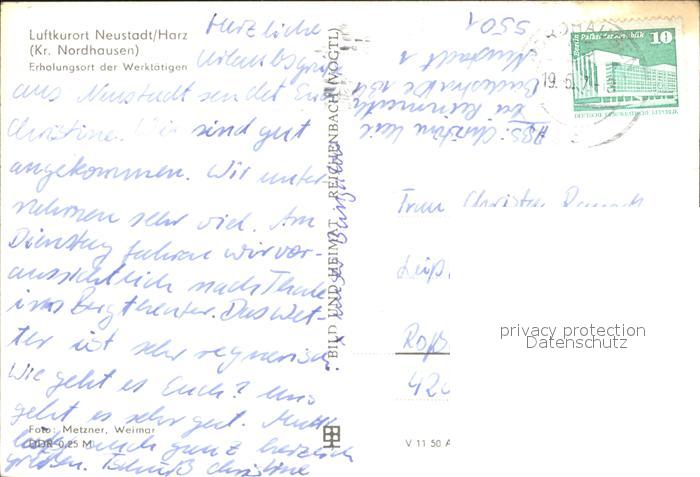 Luftkurort Neustadt/Harz
(Kr. Nordhausen)
Erholungsort der Werktätigen
Herzliche
Urlaubsgrüße
aus Neustadt sendet Euch
Christine. Wir sind gut
angekommen. Wir unter-
nehmen sehr viel. Am
Dienstag fahren wir vor-
aussichtlich nach Thale
ins Bergtheater. Das Wet-
ter ist sehr regnerisch.
Wie geht es Euch? Uns
geht es sehr gut. Mutti
läßt auch ganz herzlich
grüßen. Tschüß Christine
Foto: Metzner, Weimar
DDR 0,25 M
BILD UND HEIMAT REICHENBACH (VOGTL)
ABS: Christine
Neustadt
5501
Berlin Palast der Republik
10
19.5.
Frau
Roß
42
V 11 50 A
privacy protection
Datenschutz